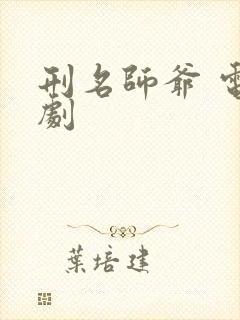 刑名師爺 電
劇
葉培建